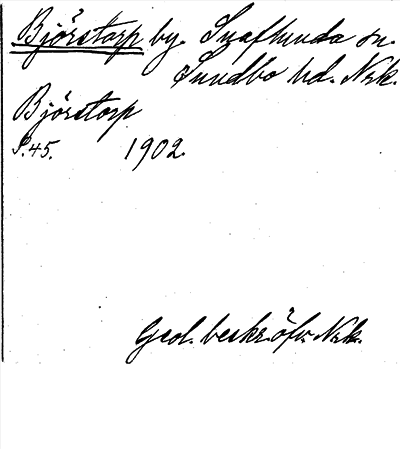 Björstorp by. Snaflunda sn.
Sundbo hd. Nrk.
Björstorp
S. 45. 1902.
Geol. beskr. öfv. Nrk.